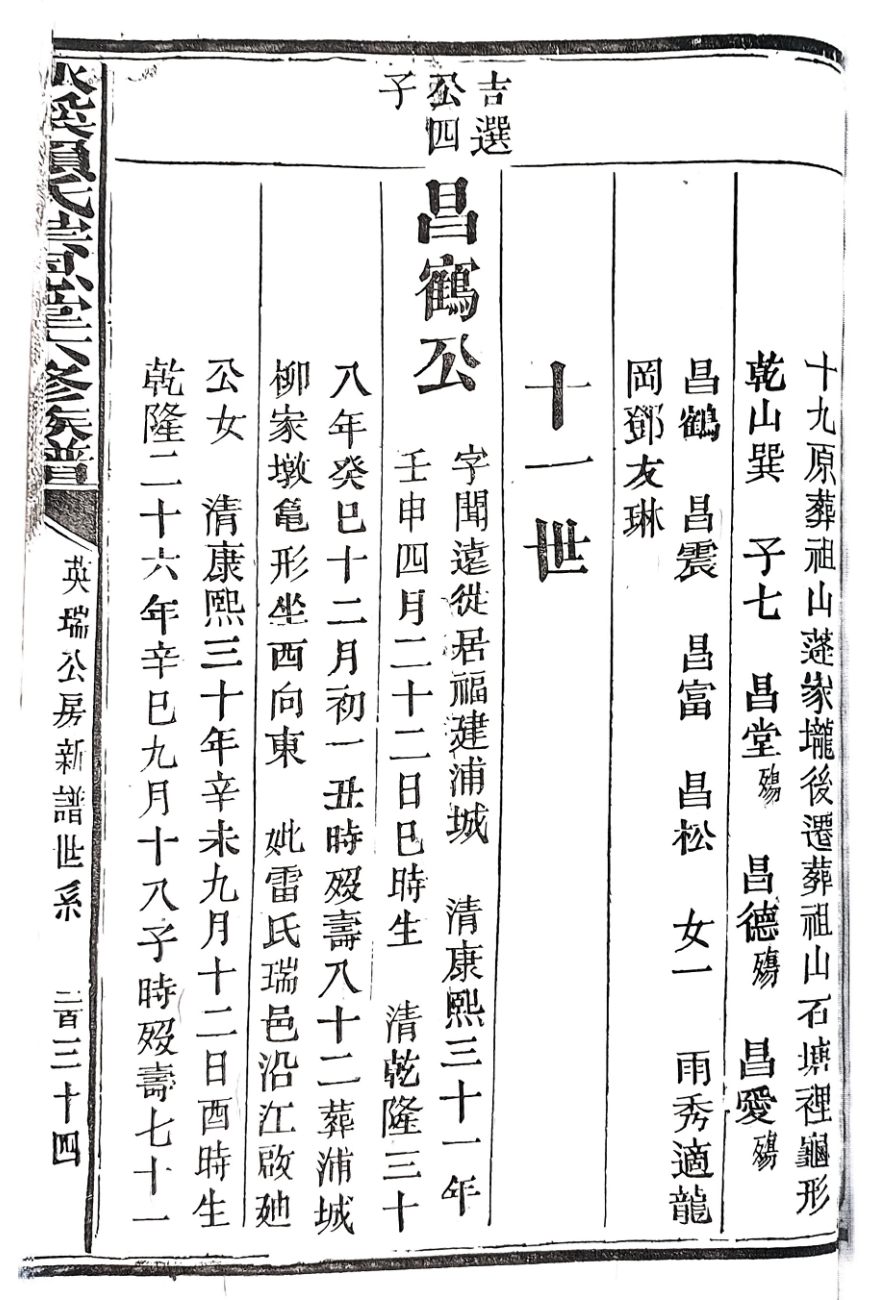 十九原葬祖山蓬家壠後遷葬祖山石塘裡龜形
乾山巽 子七 昌堂殤 昌德殤 昌愛殤
昌鶴 昌震 昌富 昌松 女一 雨秀適龍
岡鄧友琳
十一世
吉選
公四
子
昌鶴公
字聞遠從居福建浦城 清康熙三十一年
壬申四月二十二日巳時生 清乾隆三十
八年癸巳十二月初一丑時歿壽八十二葬浦城
柳家墩龜形坐西向東 妣雷氏瑞邑沿江啟廸
公女 清康熙三十年辛未九月十二日酉時生
乾隆二十六年辛巳九月十八子時歿壽七十一
六修族譜
英瑞公房新譜世系 二百三十四